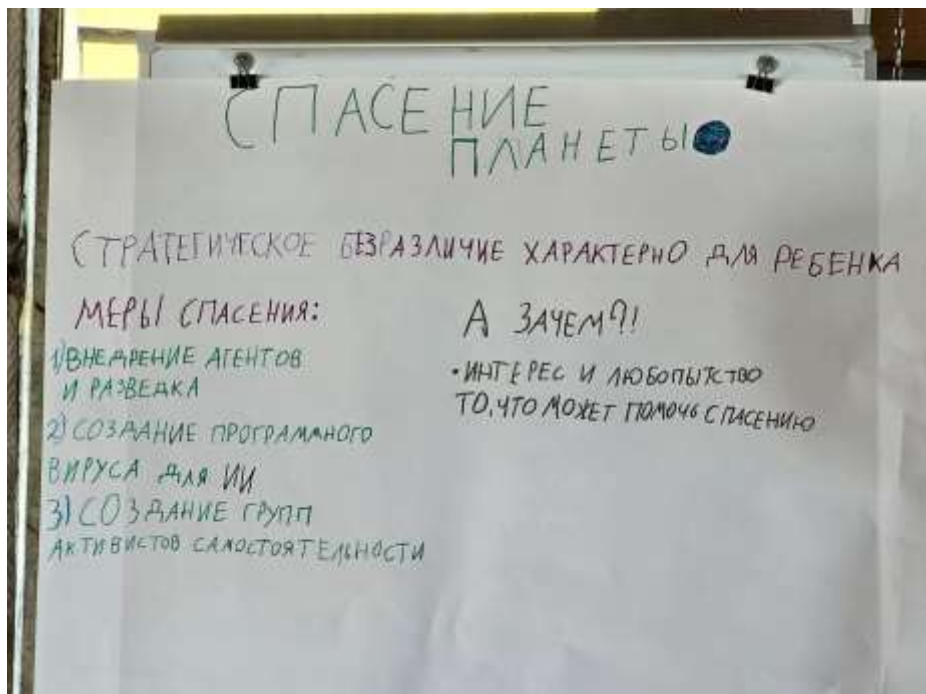 СПАСЕНИЕ
ПЛАНЕТЫ
СТРАТЕГИЧЕСКОЕ БЕЗРАЗЛИЧИЕ ХАРАКТЕРНО ДЛЯ РЕБЕНКА
МЕРЫ СПАСЕНИЯ:
1) ВНЕДРЕНИЕ АГЕНТОВ
И РАЗВЕДКА
2) СОЗДАНИЕ ПРОГРАММНОГО
ВИРУСА ДЛЯ ИИ
3) СОЗДАНИЕ ГРУПП
АКТИВИСТОВ САМОСТОЯТЕЛЬНОСТИ
А ЗАЧЕМ?!
• ИНТЕРЕС И ЛЮБОПЫТСТВО
ТО, ЧТО МОЖЕТ ПОМОЧЬ СПАСЕНИЮ